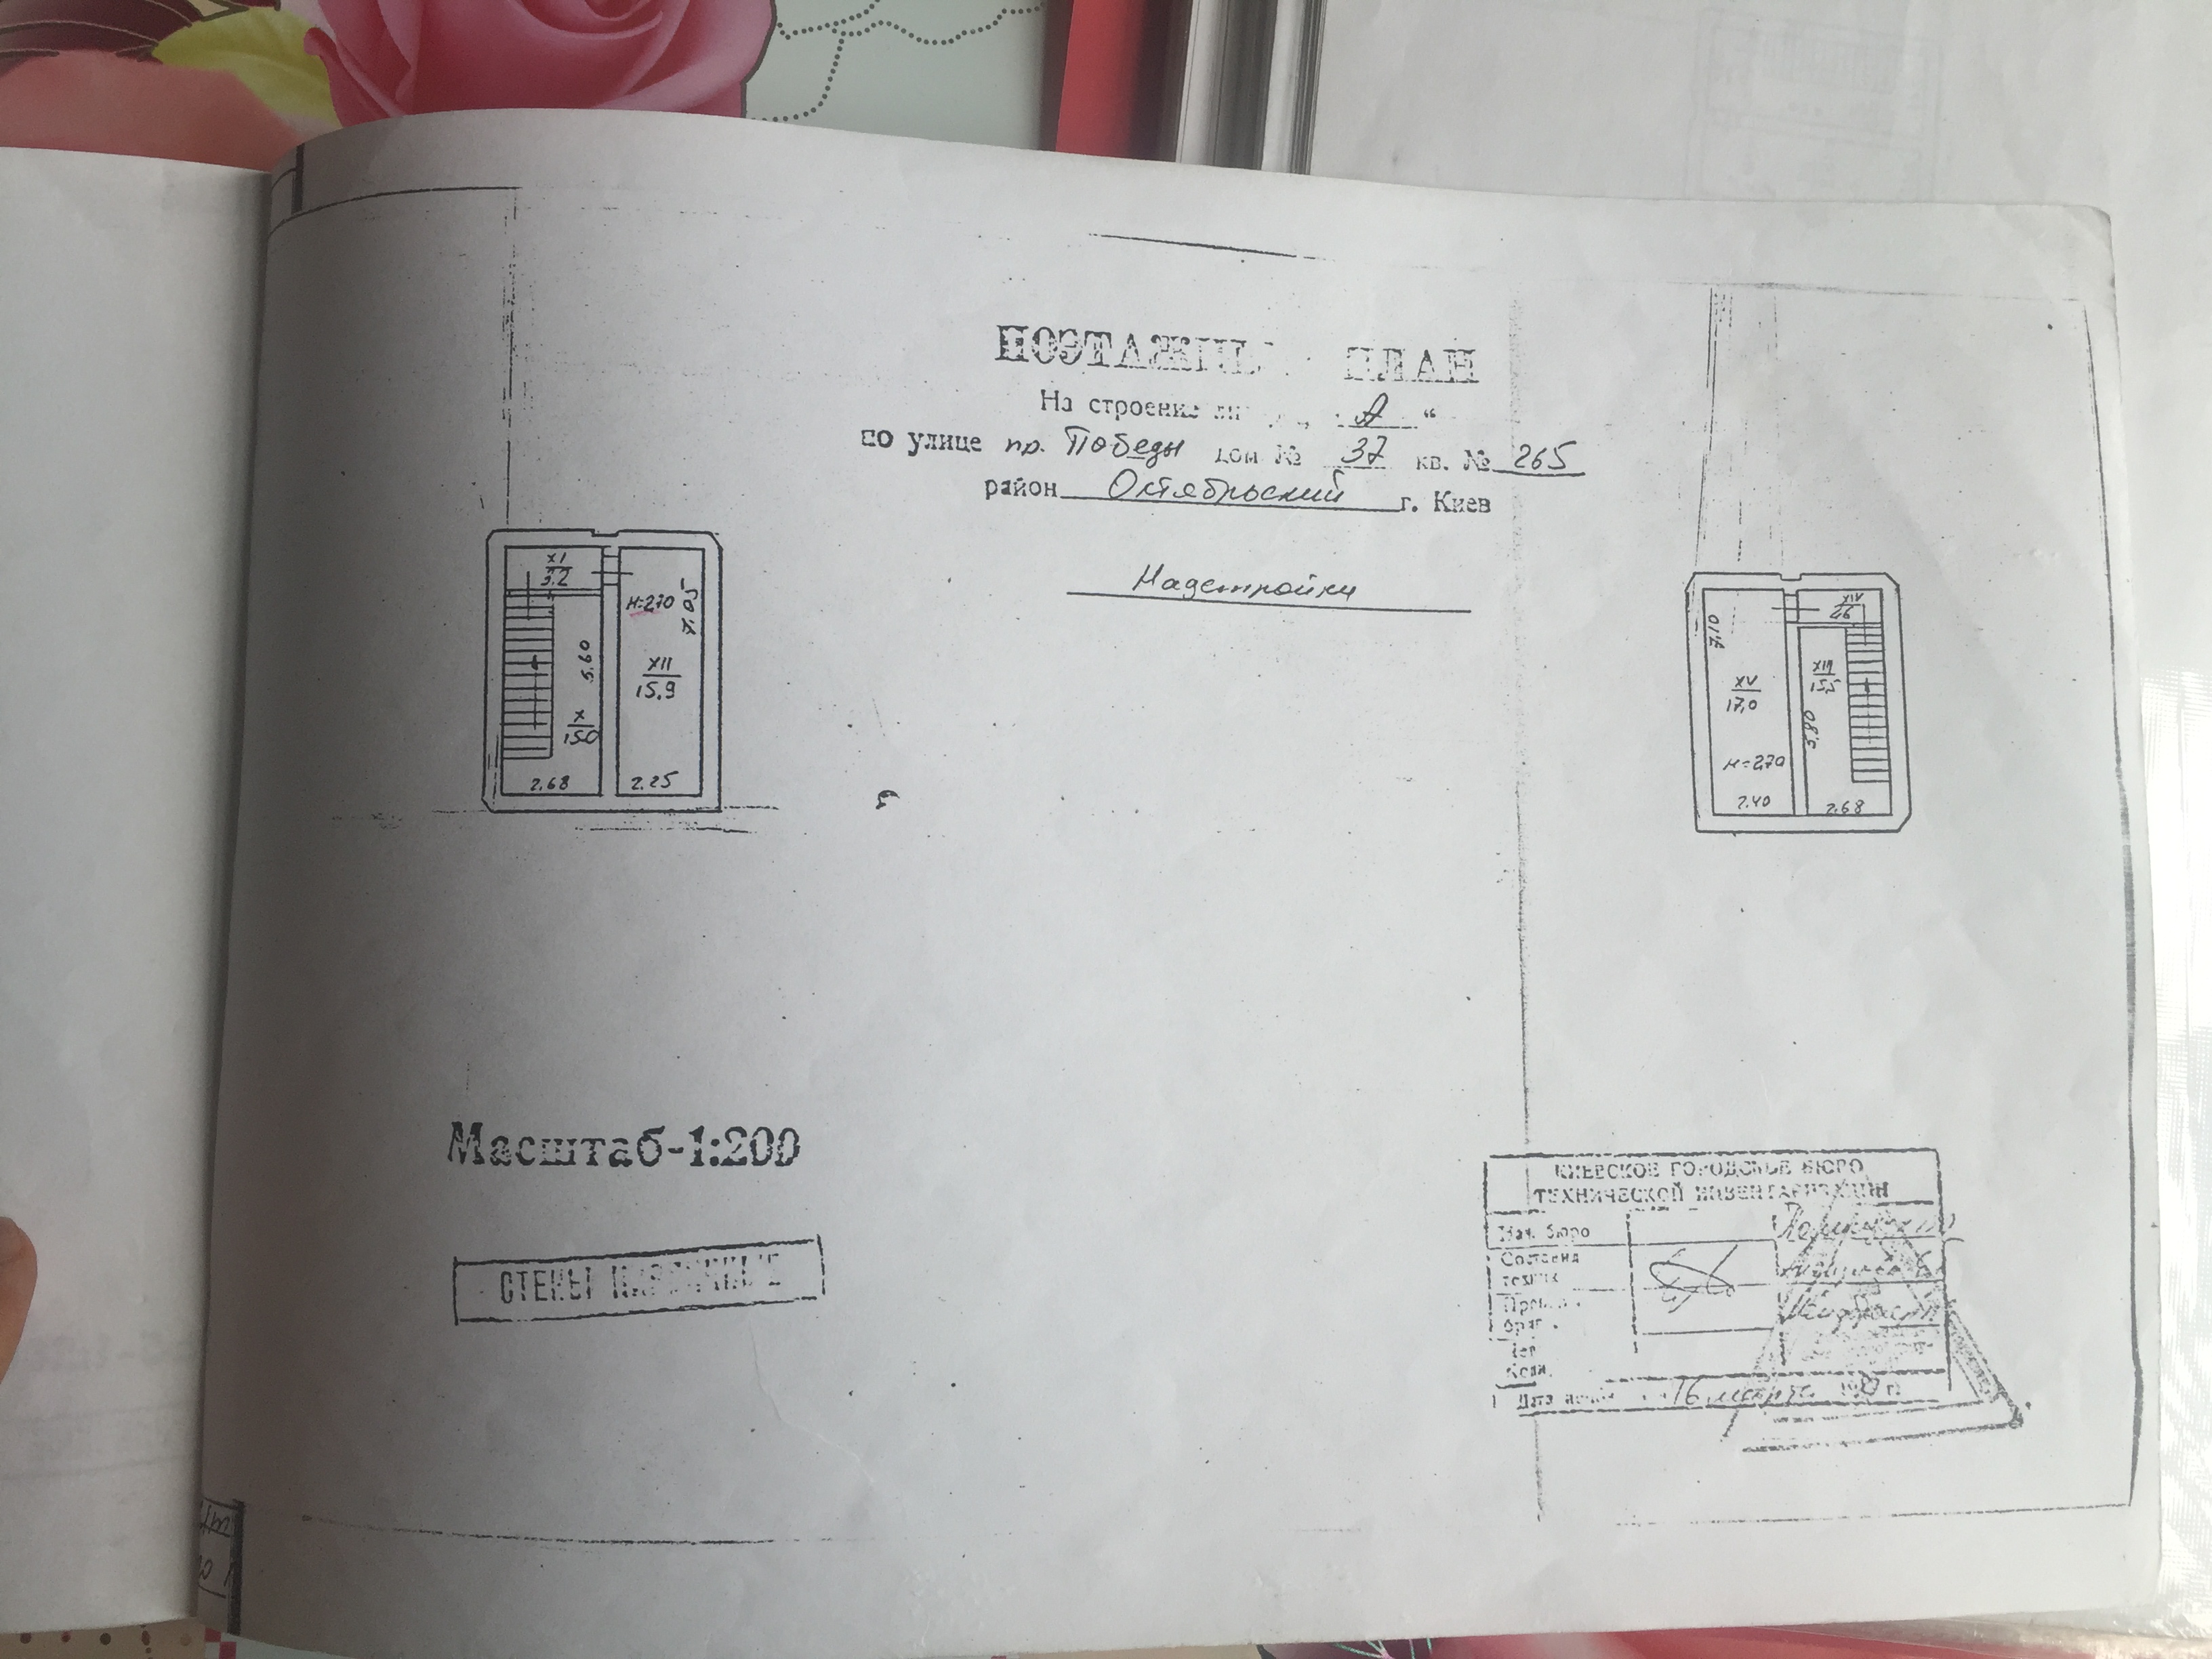 ПОЭТАЖНЫ ПЛАН
На строение лит „ А “
по улице пр. Победы дом № 37 кв. № 265
район Октябрьский г. Киев
Надстройки
XI
3.2
H=2.70
7.05
5.60
XII
15.9
X
15.0
2.68
2.25
XIV
2.6
7.10
XIII
15.5
XV
17,0
5.80
H=2.70
2.40
2.68
Масштаб-1:200
СТЕНЫ
КИЕВСКОЕ ГОРОДСКОЕ БЮРО
ТЕХНИЧЕСКОЙ ИНВЕНТАРИЗАЦИИ
Нач. бюро
Составил
техник
Дата 16 марта г.